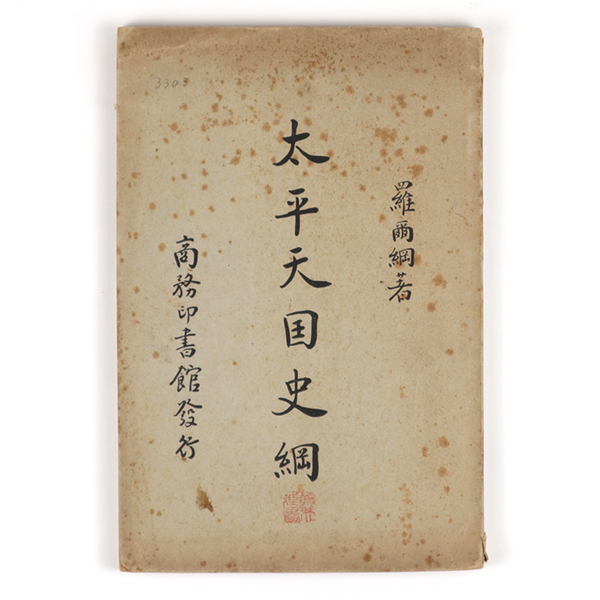 3303
羅爾綱著
太平天囯史綱
商務印書館發行